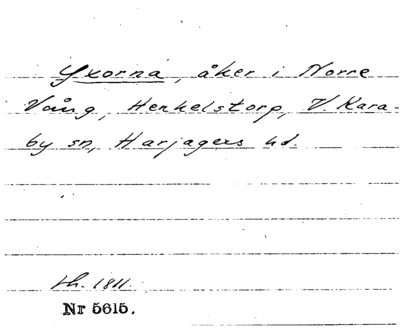 Yxorna, åker i Norre
Vång, Henkelstorp, V. Kara-
by sn, Harjagers hd.
th. 1811.
Nr 5615.